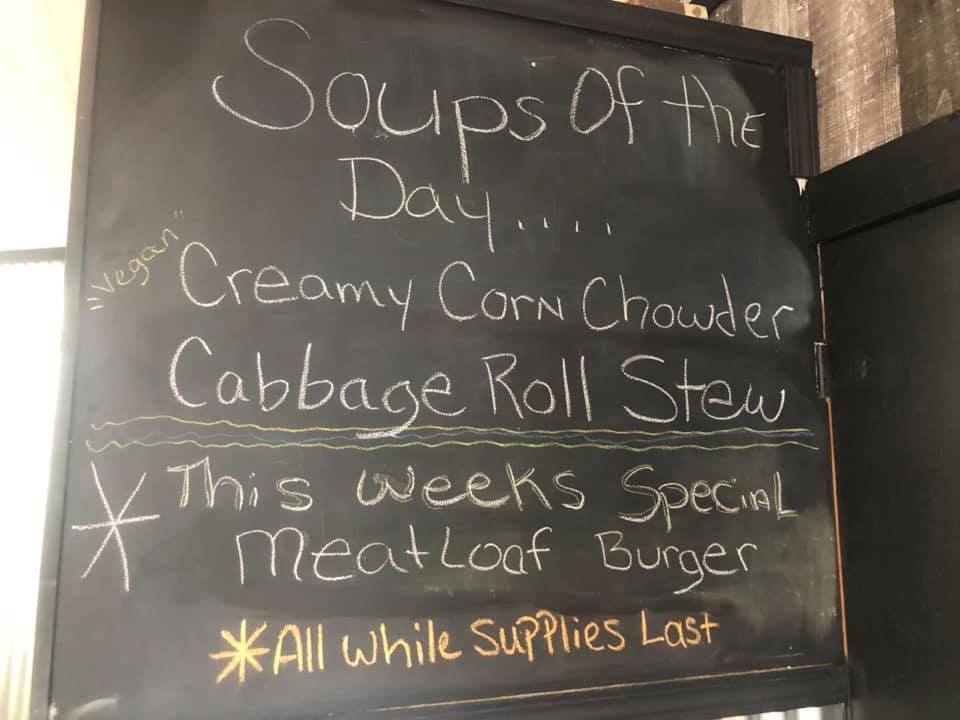 Soups Of the
Day.....
"Vegan" Creamy Corn Chowder
Cabbage Roll Stew
* This weeks Special
Meatloaf Burger
*All while Supplies Last